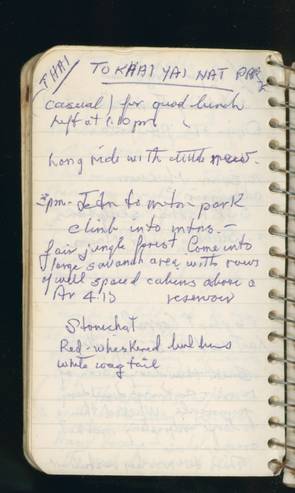 THAI
TO KHAI YAI NAT PARK
(casual) for quad lunch
Left at 1:10 pm
Long ride with little
3 pm - to park
climb into mtns. -
fair jungle forest Come into
large savanah area with rows
of well spaced cabins above a
Ar 4:15 reservoir
Stonechat
Red-whiskered bulbuls
white wagtail